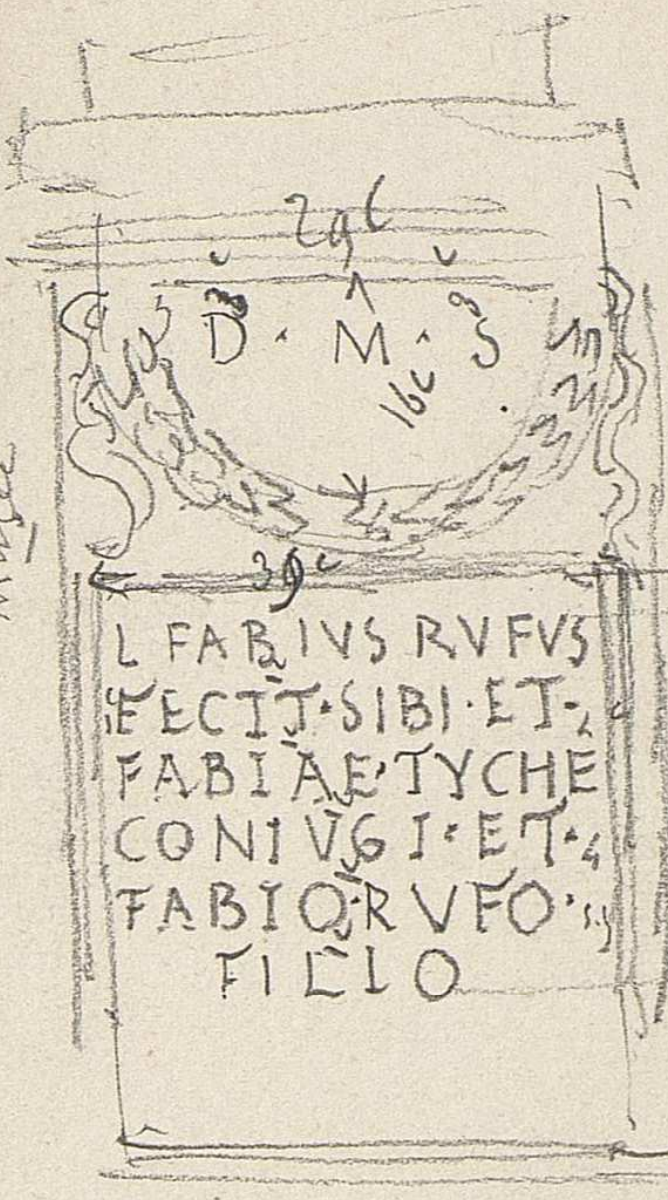 29c
D · M · S
16c
39c
L FABIVS RVFVS
FECIT · SIBI · ET ·
FABIAE · TYCHE
CONIVGI · ET ·
FABIO · RVFO ·
FILIO